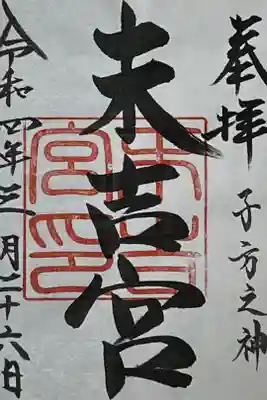 奉拝
子方之神
末吉宮
末吉宮印
令和四年三月二十六日